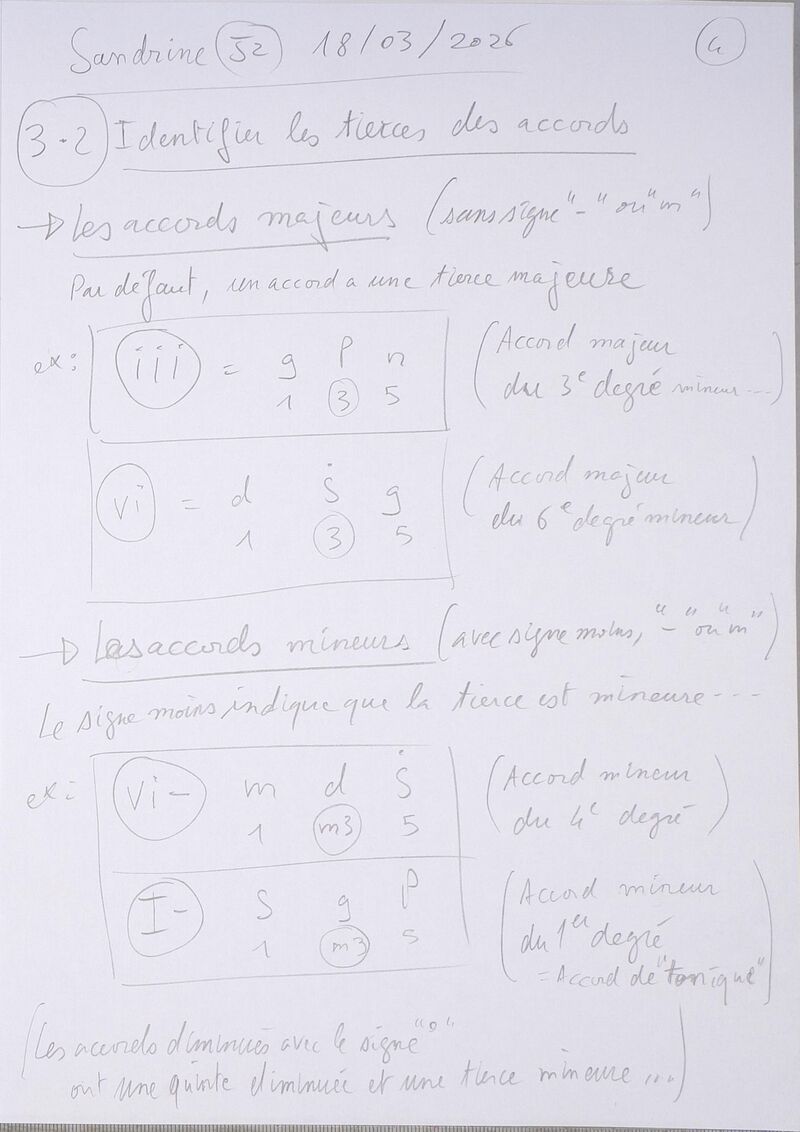 Sandrine S2 18/03/2026 4
3-2 Identifier les tierces des accords
→ Les accords majeurs (sans signe "-" ou "m")
Par défaut, un accord a une tierce majeure
ex: iii = g p n (Accord majeur
1 3 5 du 3e degré mineur ...)
vi = d ṡ g (Accord majeur
1 3 5 du 6e degré mineur)
→ Les accords mineurs (avec signe moins, "-" ou "m")
Le signe moins indique que la tierce est mineure ---
ex: vi- m d ṡ (Accord mineur
1 m3 5 du 4e degré)
I- S g p (Accord mineur
1 m3 5 du 1er degré
= Accord de "tonique")
(Les accords diminués avec le signe "o"
ont une quinte diminuée et une tierce mineure ...)